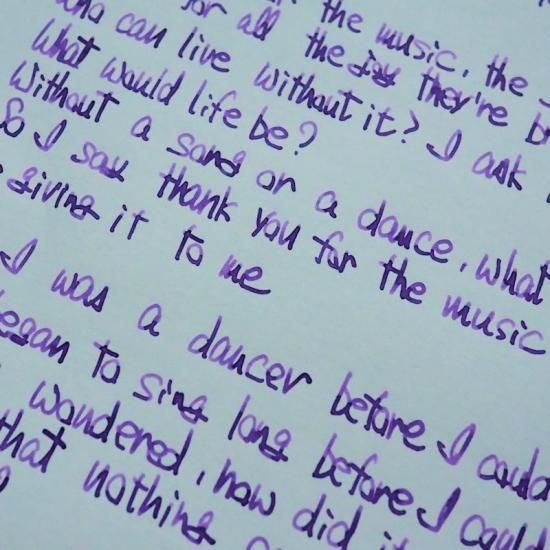 the music, the
for all the joy they're
who can live without it? I ask
What would life be?
Without a song or a dance, what
So I say thank you for the music
giving it to me
I was a dancer before I
began to sing long before I
wondered, how did it
that nothing